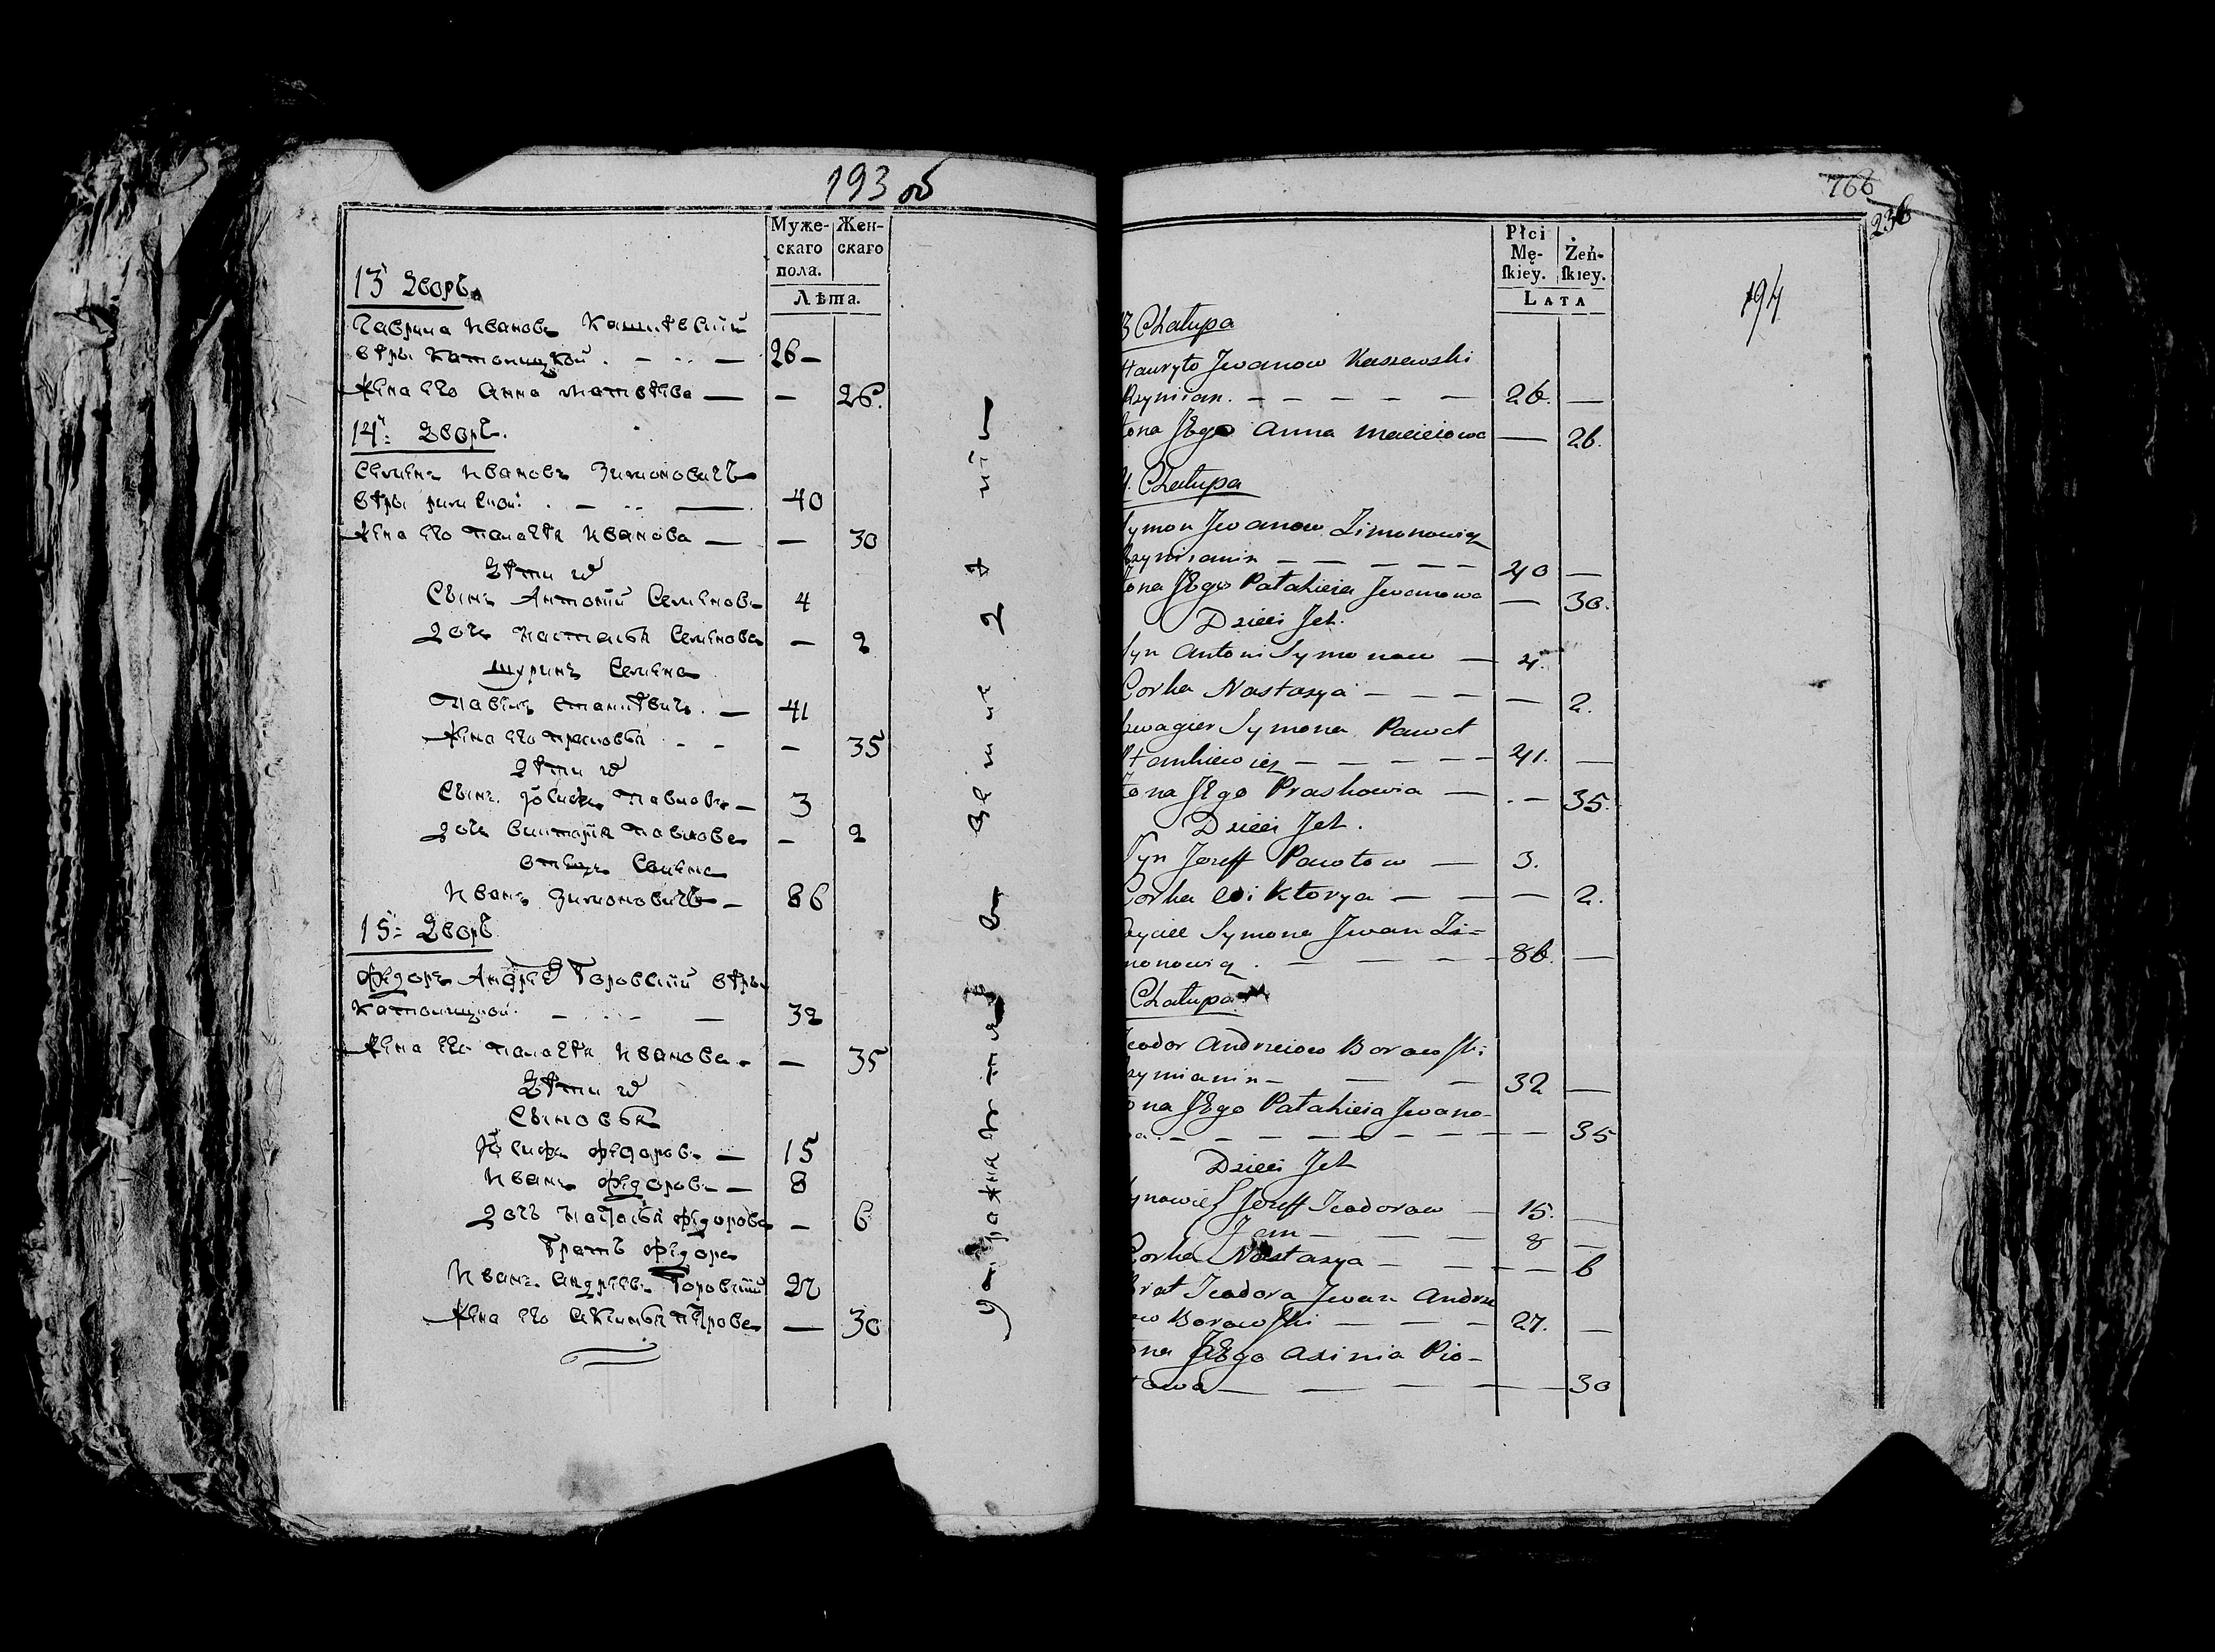 193 об
Муже-
скаго
пола.
Жен-
скаго
Лѣта.
13 Дворъ.
Гаврила Ивановъ Кашевскiй
вѣры католицкой . — .. — 26 —
Жена его Анна Матвѣева — — 26.
14: Дворъ.
Семенъ Ивановъ Зимоновичъ
вѣры римской . — .. — 40
Жена его Палагѣя Иванова — — 30
Дѣти их
Сынъ Антонiй Семеновъ 4
дочь Настасья Семенова — 2
шуринъ Семена
Павелъ Станкѣвичъ . — 41
Жена его Прасковья - - — 35
дѣти их
Сынъ Iосифъ Павловъ — 3
дочь Викторiя Павлова — 2
отецъ Семена
Иванъ Зимоновичъ — 86
15: Дворъ
Федоръ Андреев Боровскiй вѣры
Католицкой — . . — — 32
Жена его Палагѣя Иванова — — 35
Дѣти их
Сыновья
Iосифъ Федоровъ — 15
Иванъ Федоровъ — 8
дочь Настасья Федорова — 6
братъ Федора
Иванъ Андреевъ Боровскiй 27
Жена его Аксинья Петрова — 30
766
236
194
Płci
Mę-
ſkiey.
Żeń-
ſkiey.
LATA
3 Chałupa
Hawryło Jwanow Kaszewski
Rzymian. — — — — — 26. —
ona JEgo Anna Macieiowa — 26.
4. Chałupa
Symon Jwanow Zimonowicz
Rzymianin — — — — — 40 —
ona JEgo Pałahieia Jwanowa — 30.
Dzieci Jch.
Syn Antoni Symonow — 4.
Corka Nastazya — — — — 2.
Szwagier Symona Paweł
Stankiewicz — — — — — 41. —
Żona JEgo Praskowia — . — 35.
Dzieci Jch.
Syn Jozeff Pawłow — 3.
Corka Wiktorya — — — 2.
oyciec Symona Jwan Zi=
monowicz . — — — — 86. —
Chałupa
eodor Andrzeiow Borowſki
zymianin — — — 32 —
ona JEgo Pałahieia Jwano-
a. — — — — — — — — 35
Dzieci Jch
ynowie Jozeff Teodorow — 15. —
Jan — — — 8 —
Corka Nastazya — — — — 6
Brat Teodora Jwan Andrze
ow Borowſki — — — 27. —
ona JEgo Axinia Pio-
towa — — — — — 30